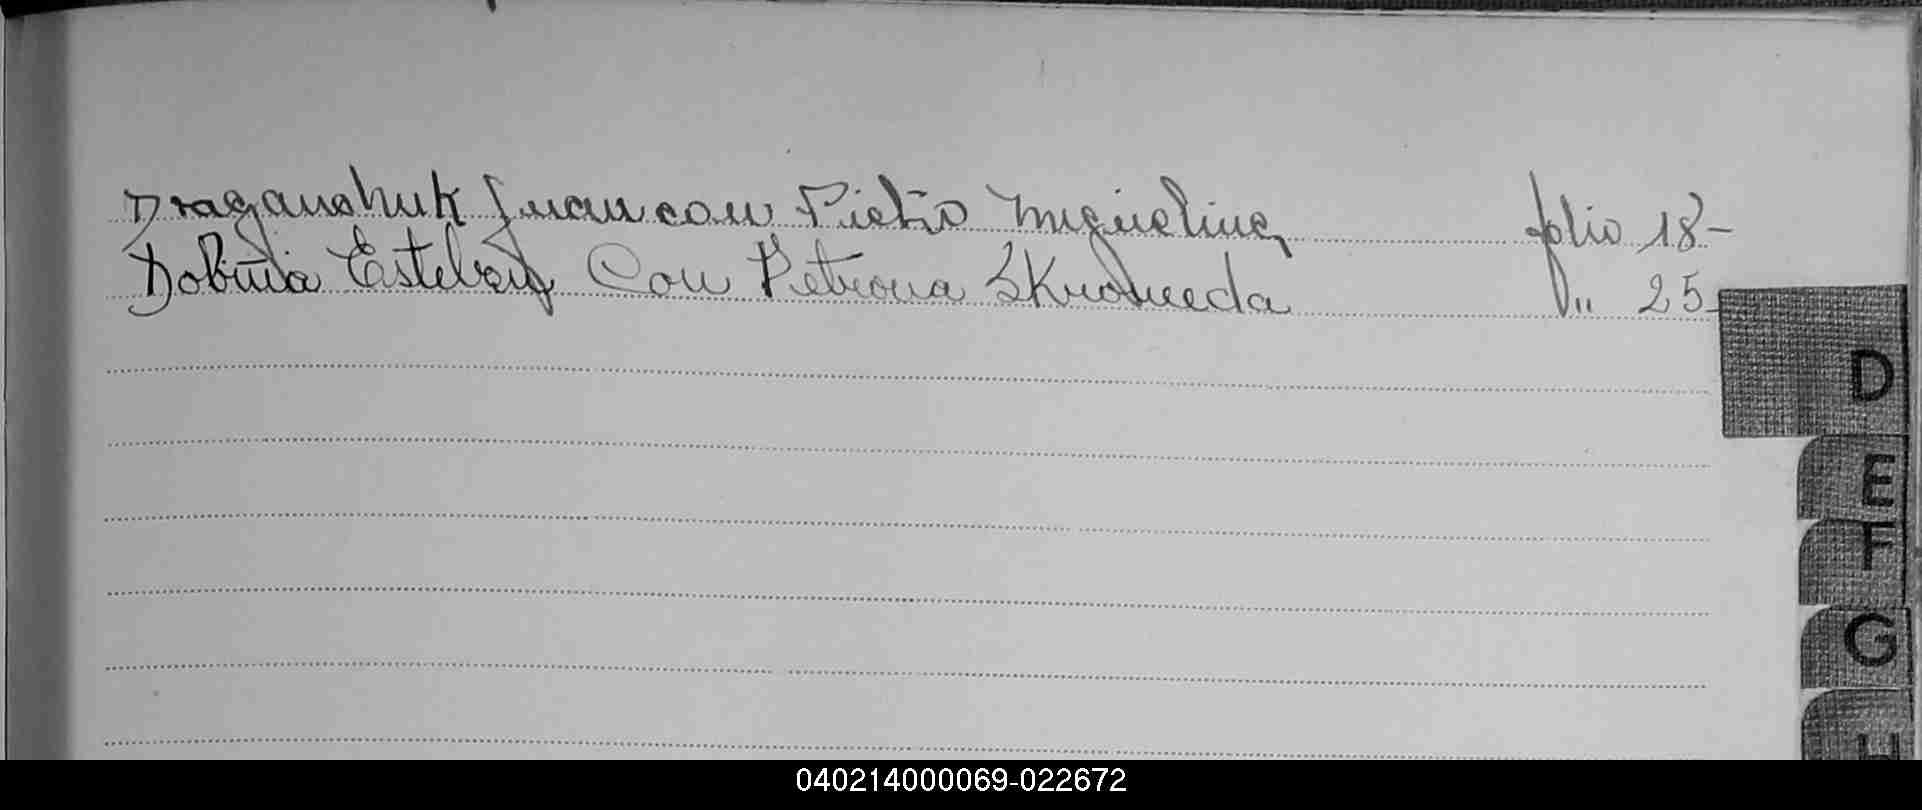 Draganchuk Juan con Pietro Miguelina folio 18-
Dobuia Esteban Con Petrona Skromeda " 25-
D
E
F
G
H
040214000069-022672